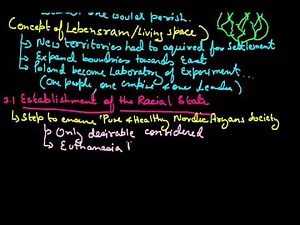 one would perish.
(Concept of Lebensram/Living space)
↳ New territories had to aquired for Settlement
↳ Expand boundaries towards East
↳ Poland become Laboratory of Experiment...
(One people, one empire & one Leader)
3.1 Establishment of the Racial State
↳ Step to ensure 'Pure & Healthy Nordic Aryans Society
↳ Only desirable considered
↳ Euthanasia